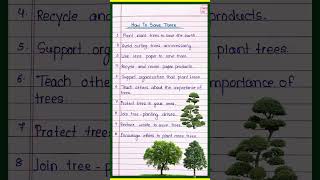 How To Save Trees
1. Plant more trees to save the earth.
2. Avoid cutting trees unnecessarily.
3. Use less paper to save trees.
4. Recycle and reuse paper products.
5. Support organization that plant trees.
6. Teach others about the importance of
trees.
7. Protect trees in your area.
8. Join tree-planting drives.
9. Reduce waste to save trees.
10. Encourage others to plant more trees.
4. Recycle
products.
5. Support
plant trees.
6. Teach
importance of
trees.
7 Protect
8 Join tree-p